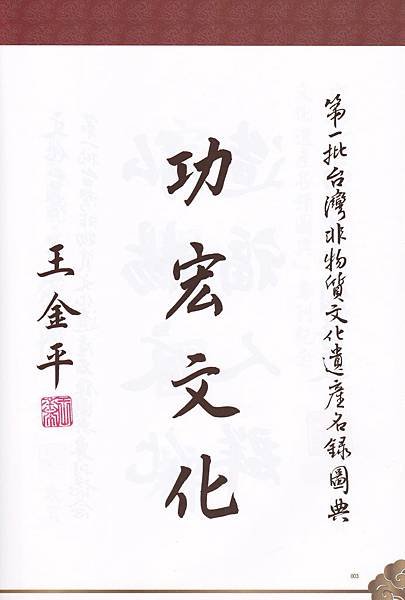 第一批台灣非物質文化遺產名錄圖典
功宏文化
王金平
003